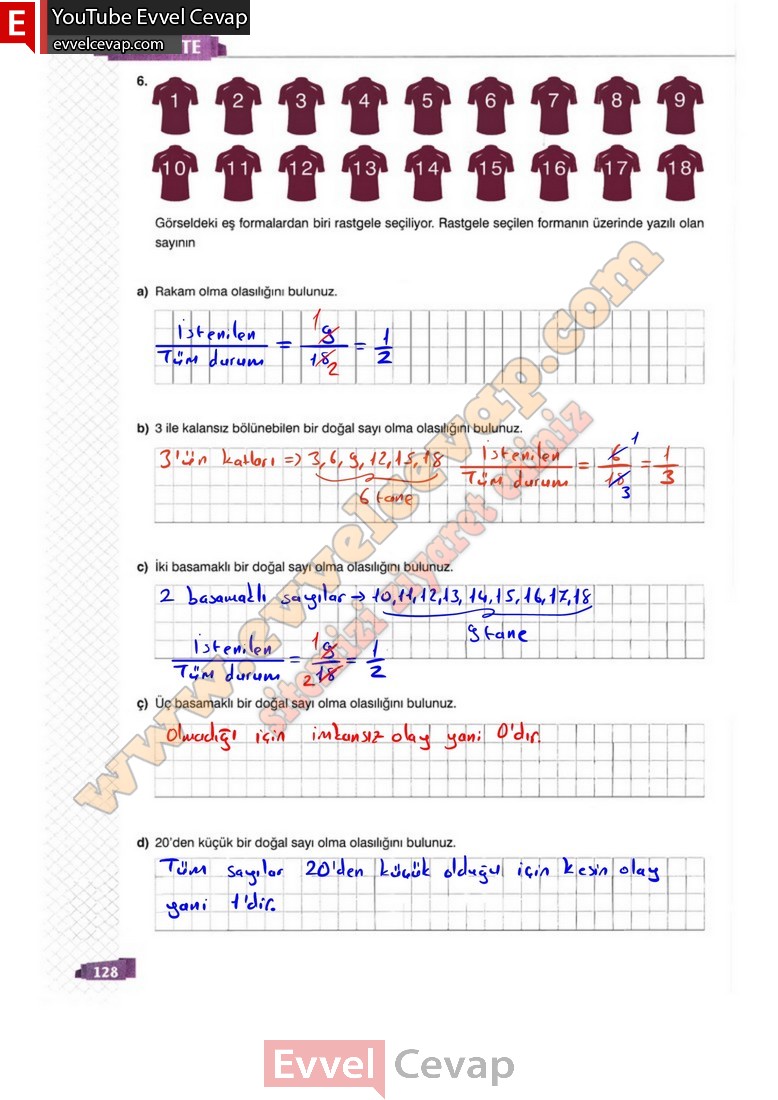 E YouTube Evvel Cevap
evvelcevap.com
TE
6.
1 2 3 4 5 6 7 8 9
10 11 12 13 14 15 16 17 18
Görseldeki eş formalardan biri rastgele seçiliyor. Rastgele seçilen formanın üzerinde yazılı olan
sayının
a) Rakam olma olasılığını bulunuz.
İstenilen / Tüm durum = 9 / 18 = 1 / 2
1
2
b) 3 ile kalansız bölünebilen bir doğal sayı olma olasılığını bulunuz.
3'ün katları => 3, 6, 9, 12, 15, 18 İstenilen / Tüm durum = 6 / 18 = 1 / 3
1
3
6 tane
c) İki basamaklı bir doğal sayı olma olasılığını bulunuz.
2 basamaklı sayılar → 10, 11, 12, 13, 14, 15, 16, 17, 18
9 tane
İstenilen / Tüm durum = 9 / 18 = 1 / 2
1
2
ç) Üç basamaklı bir doğal sayı olma olasılığını bulunuz.
Olmadığı için imkansız olay yani 0'dır.
d) 20'den küçük bir doğal sayı olma olasılığını bulunuz.
Tüm sayılar 20'den küçük olduğu için kesin olay
yani 1'dir.
128
www.evvelcevap.com
sitemizi ziyaret ediniz
Evvel Cevap